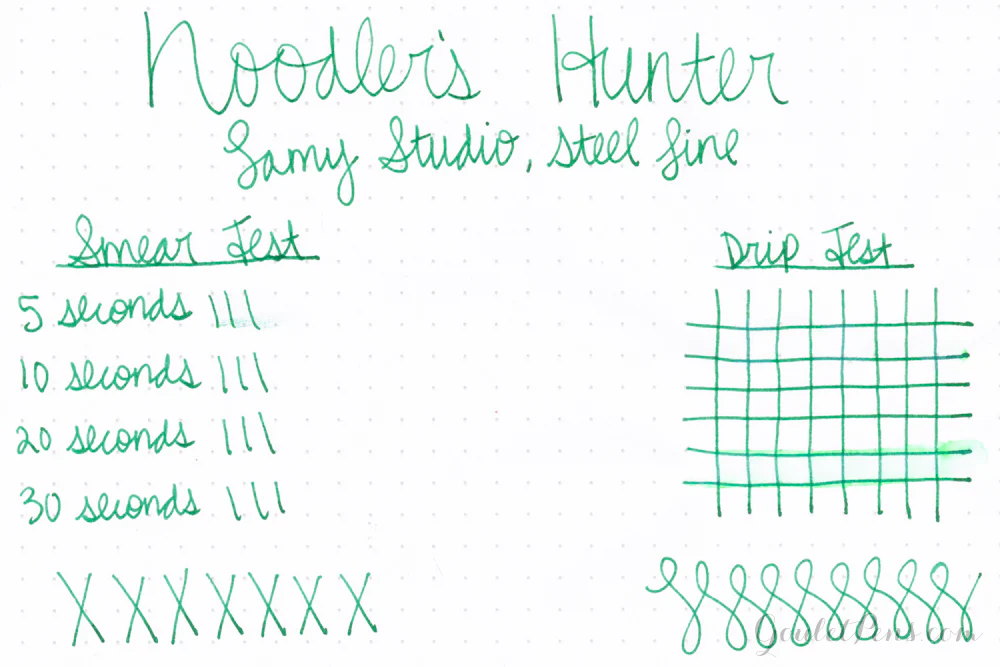 Noodler's Hunter
Lamy Studio, steel fine
Smear Test
Drip Test
5 seconds
10 seconds
20 seconds
30 seconds
XXXXXXX
GouletPens.com